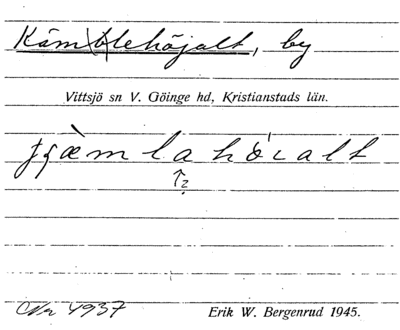 Käm\blehöjalt, by
Vittsjö sn V. Göinge hd, Kristianstads län.
hɵ̀ialt
?
Nr 4937 Erik W. Bergenrud 1945.